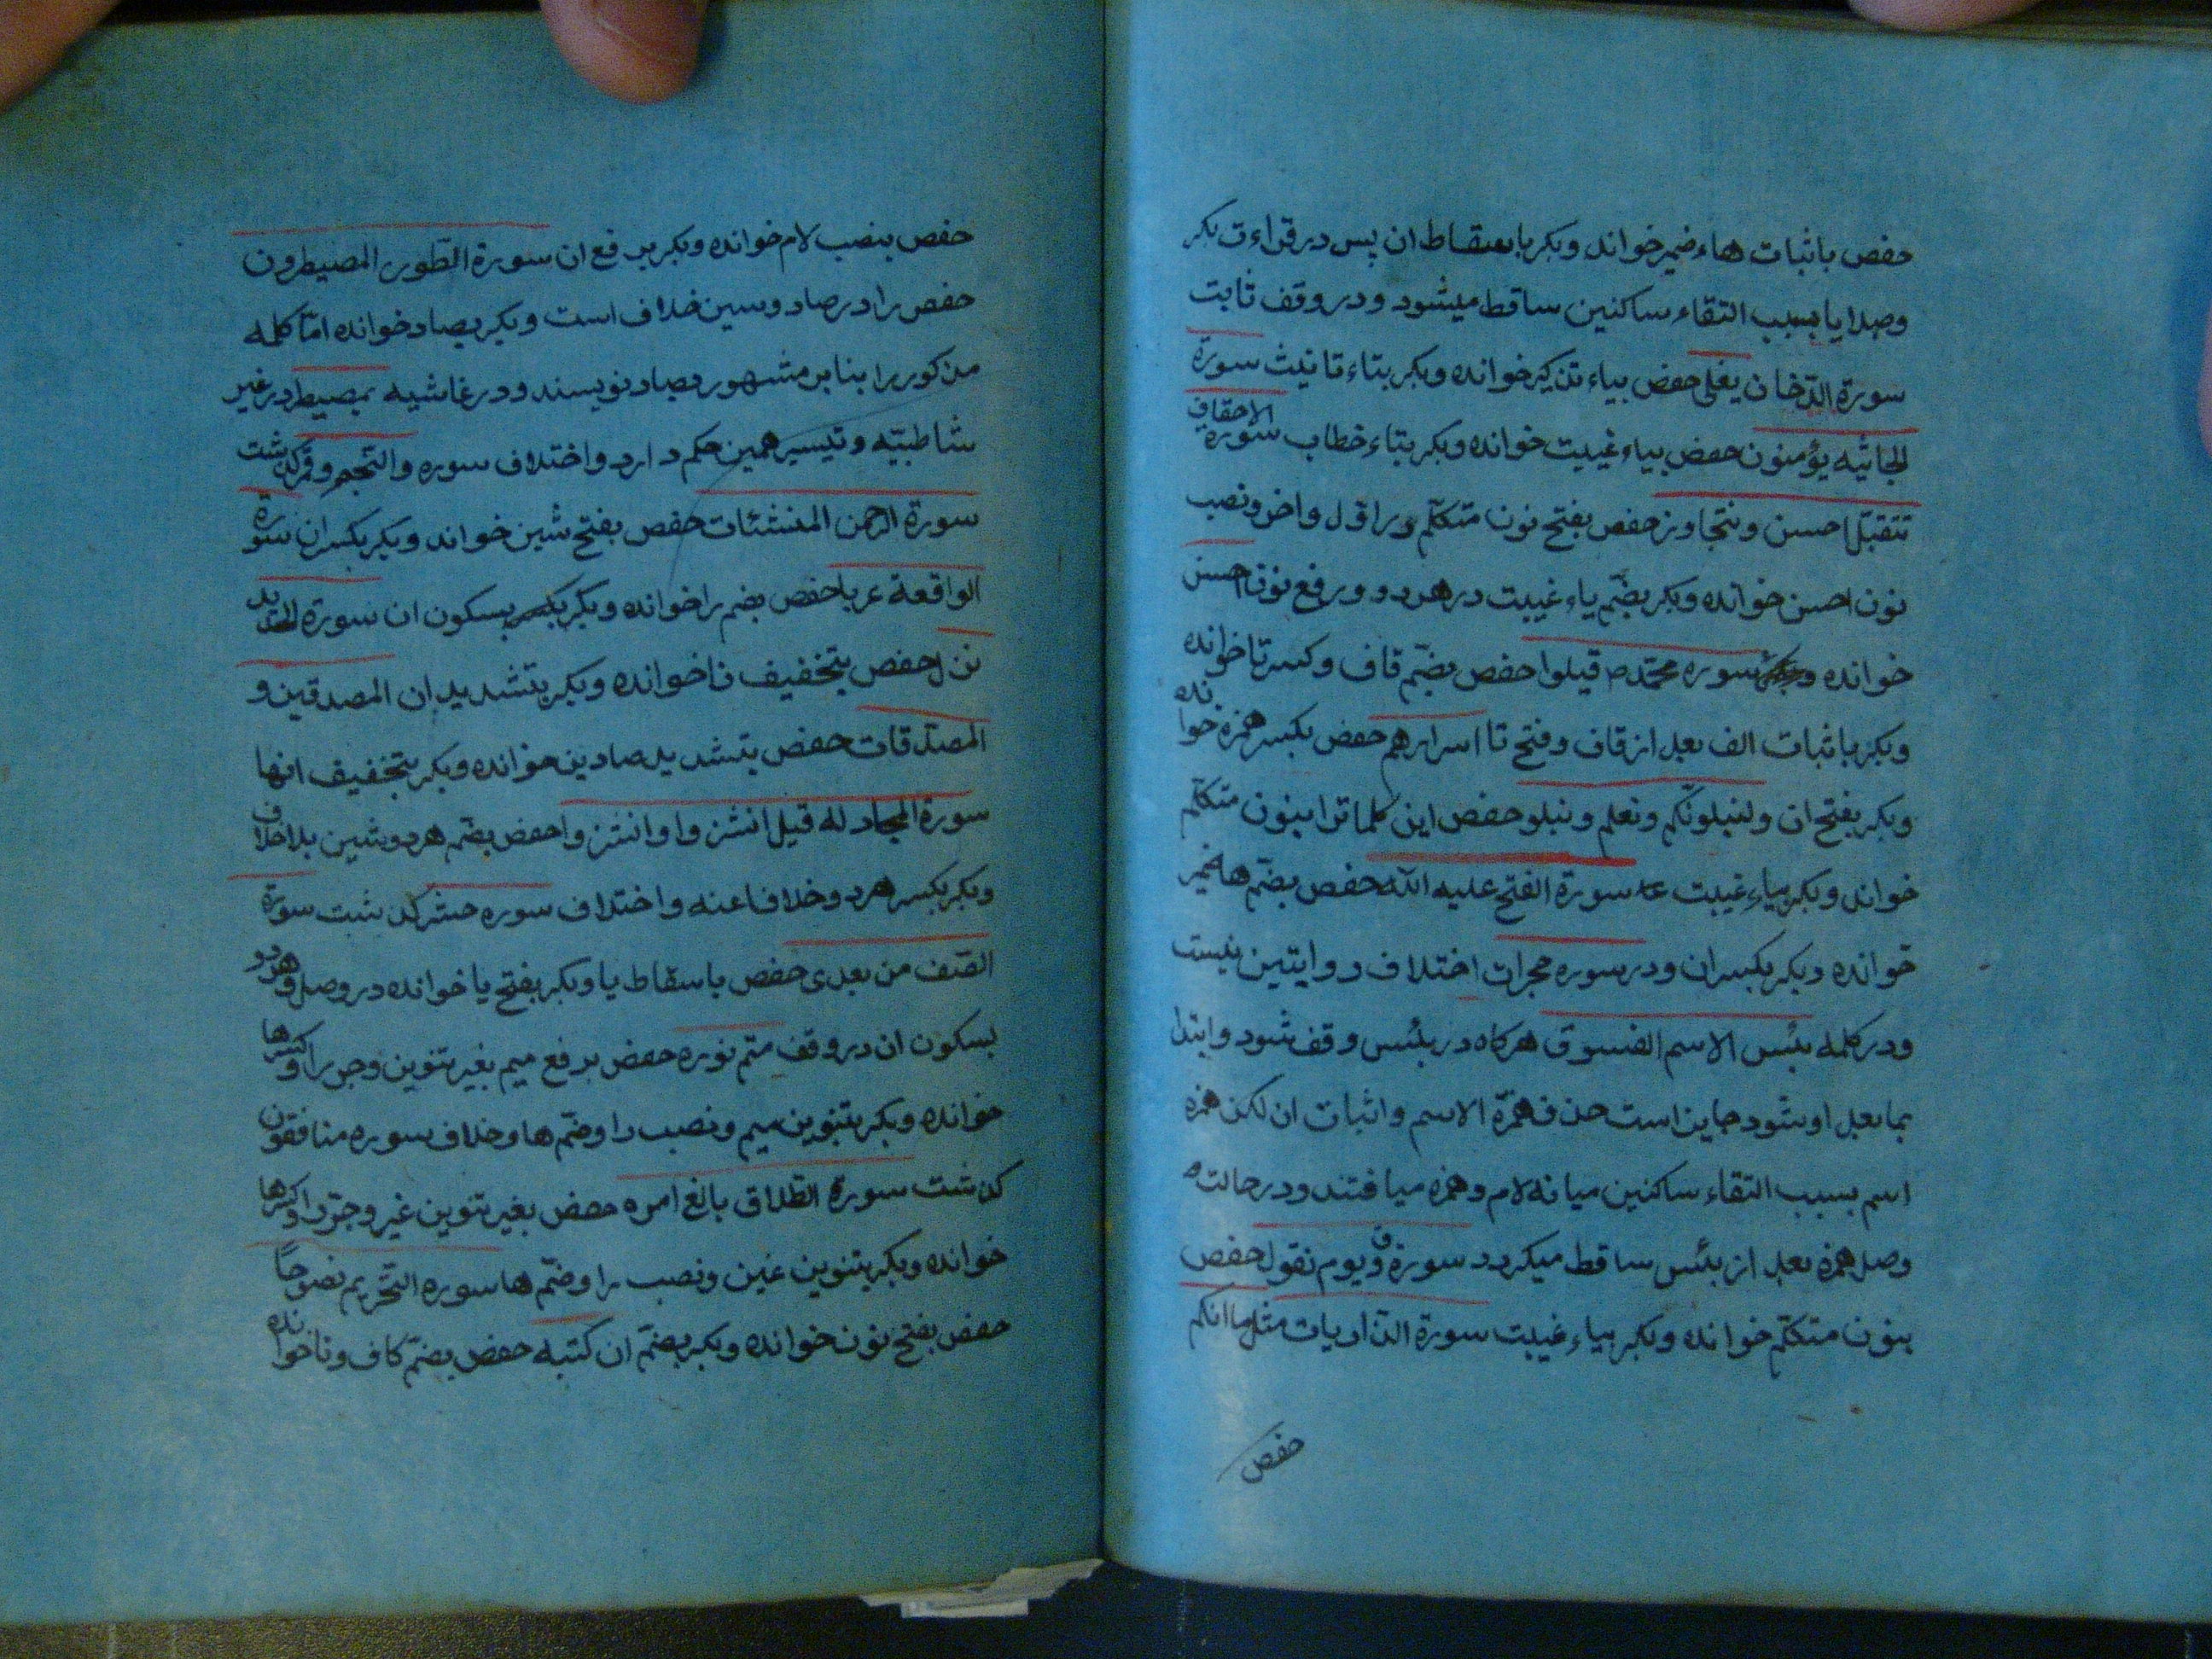 حفص باثبات هاء ضمیر خواند وبکر باسقاط ان پس در قراءت بکر
وصلا یا بسبب التقاء ساکنین ساقط میشود ودر وقف ثابت
سورة الدّخان یغلی حفص بیاء تذکیر خوانده وبکر بتاء تانیث سورة
الجاثیه یؤمنون حفص بیاء غیبت خوانده وبکر بتاء خطاب سورة الاحقاف
نتقبّل احسن ونتجاوز حفص بفتح نون متکلّم در اوّل واخر ونصب
نون احسن خوانده وبکر بضّم یاء غیبت در هر دو وبرفع نون احسن
خوانده سوره محمّد ص قتلوا حفص بضّم قاف وکسر تا خوانده
وبکر باثبات الف بعد از قاف وفتح تا اسرارهم حفص بکسر همزه خوانده
وبکر بفتح ان ولنبلونّکم ونعلم ونبلو حفص این کلماترا بنون متکلّم
خواند وبکر بیاء غیبت سورة الفتح علیه الله حفص بضّم هاء ضمیر
خوانده وبکر بکسر ان ودر سوره حجرات اختلاف روایتین نیست
ودر کلمه بئس الاسم الفسوق هرکاه در بئس وقف شود وابتدا
بما بعد او شود جایز است حذف همزة الاسم واثبات ان لکن همزه
اسم بسبب التقاء ساکنین میانه لام وهمزه میافتند ودر حالت
وصل همزه بعد از بئس ساقط میکردد سورة ق ویوم نقول حفص
بنون متکلّم خوانده وبکر بیاء غیبت سورة الذّاریات مثل ما انکم
حفص
حفص بنصب لام خوانده وبکر برفع ان سورة الطّور المصیطرون
حفص را در صاد وسین خلاف است وبکر بصاد خوانده امّا کلمه
مذکور را بنا بر مشهور بصاد نویسند ودر غاشیه بمصیطر در غیر
شاطبیّه وتیسیر همین حکم دارد واختلاف سوره والنّجم وقمر کذشت
سورة الرحمن المنشئات حفص بفتح شین خواند وبکر بکسر ان سورة
الواقعة عربا حفص بضم را خوانده وبکر بسکون ان سورة الحدید
نزل حفص بتخفیف زا خوانده وبکر بتشدید ان المصدقین و
المصدّقات حفص بتشدید صادین خوانده وبکر بتخفیف انها
سورة المجادله قیل انشزوا وانشزوا حفص بضّم هر دو شین بلا خلاف
وبکر بکسر هر دو خلافا عنه واختلاف سوره حشر کذشت سورة
الصّف من بعدی حفص باسقاط یا وبکر بفتح یا خوانده در وصل وهر دو
بسکون ان در وقف متّم نوره حفص برفع میم بغیر تنوین وجر را وکسر ها
خوانده وبکر بتنوین میم ونصب را وضّم ها وخلاف سوره منافقون
کذشت سورة الطلاق بالغ امره حفص بغیر تنوین غین وجرّ را وکسر ها
خوانده وبکر بتنوین غین ونصب را وضّم ها سوره التحریم نصوحاً
حفص بفتح نون خوانده وبکر بضّم ان کتبه حفص بضّم کاف وتا خوانده